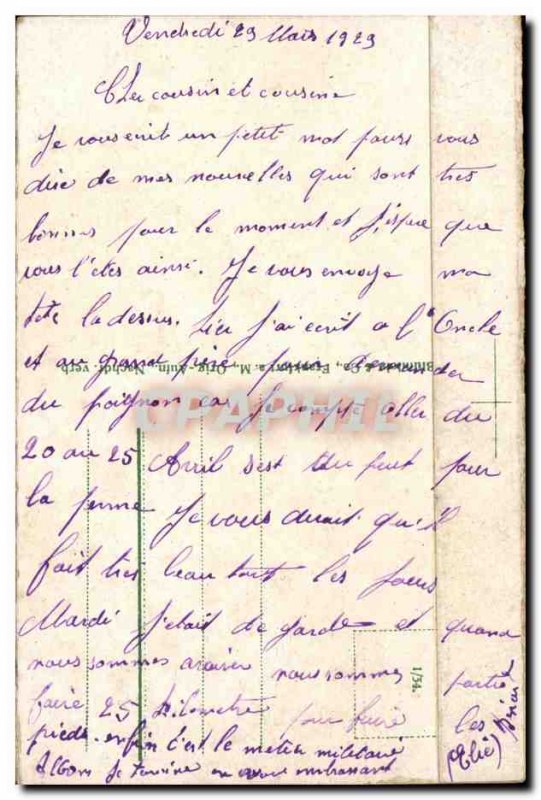 Vendredi 29 Mars 1929
Cher cousin et cousine
Je vous ecrit un petit mot pours vous
dire de mes nouvelles qui sont tres
bonnes pour le moment et j'espere que
vous l'etes ainsi. Je vous envoye ma
tête la dessus. hier j'ai ecrit a l'Oncle
et au grand père pour demander
du poignon car Je compte aller du
20 au 25 Avril s'est tu peut pour
la ferme Je vous dirait qu'il
fait tres beau tout les jours
Mardi J'etait de garde et quand
nous sommes nous sommes partie
faire 25 kilometre pour faire les
pieds. enfin c'est le metier militaire
Allons Je termine en vous embrassant
(Elie)
Co., Frankfurt a. M., Orig.-Aufn. Nachdr. verb.
1/34.
CPAPHIL